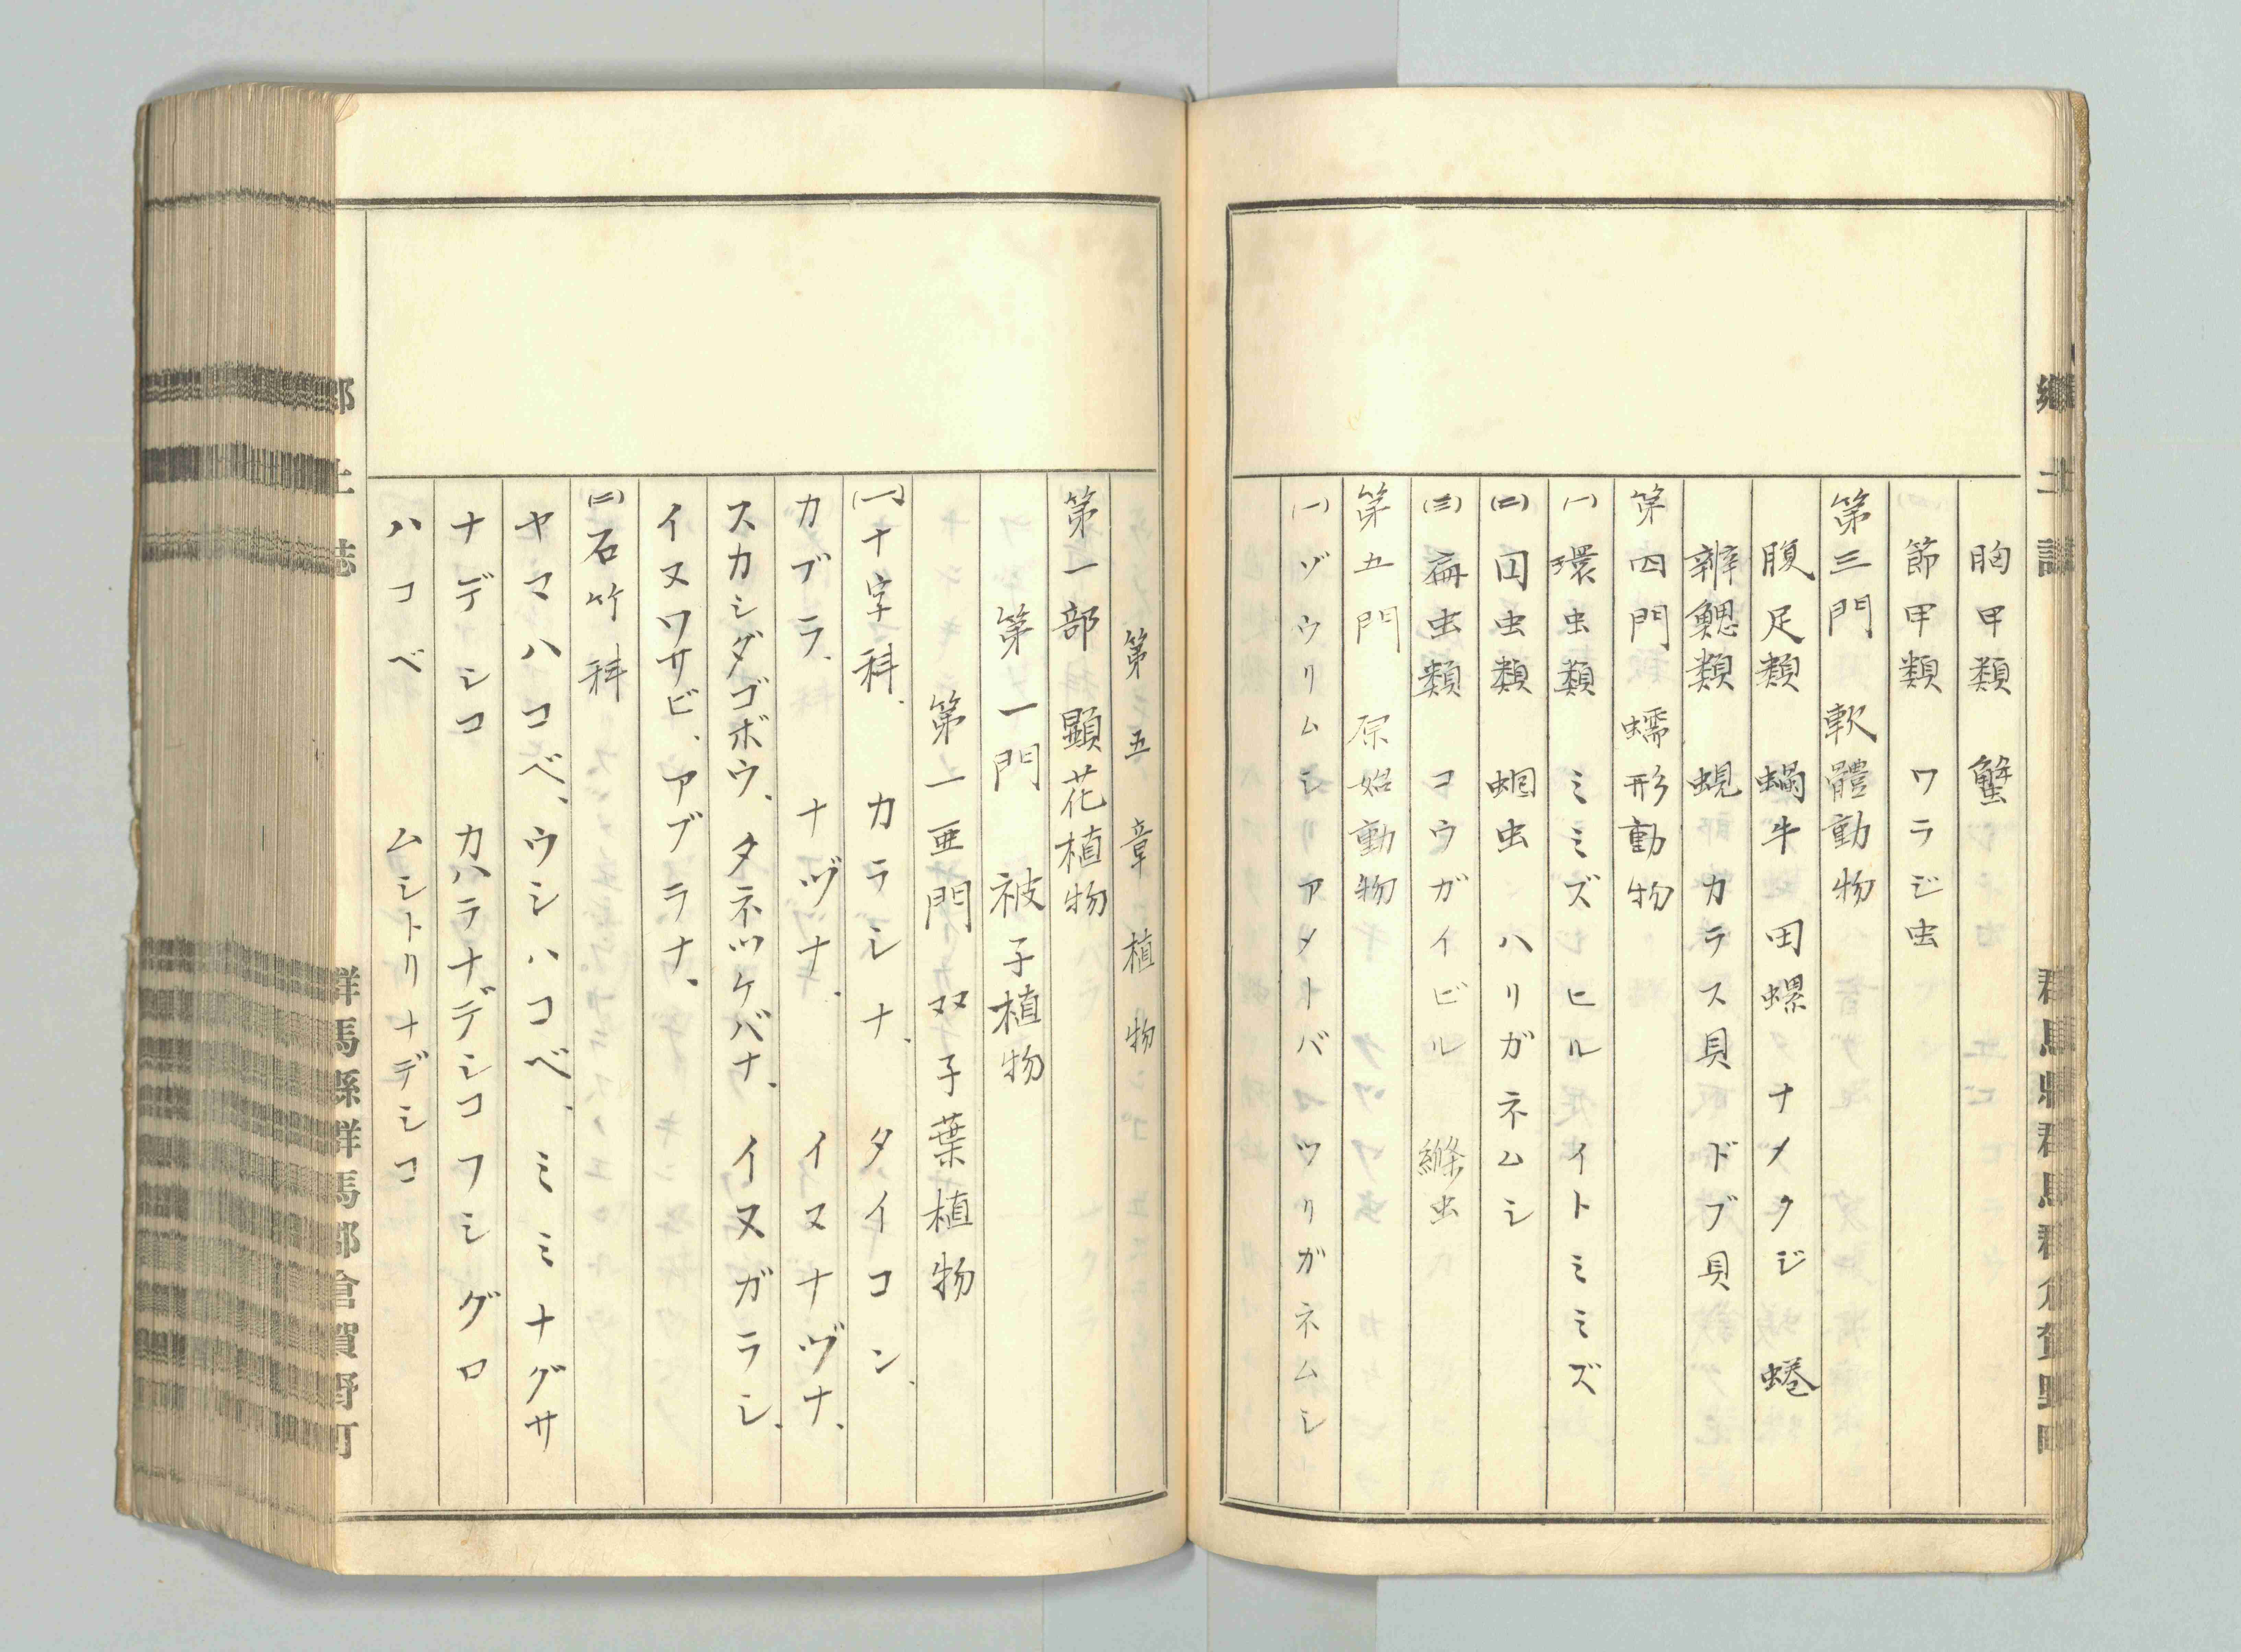 郷土誌
群馬縣群馬郡倉賀野町
胸甲類 蟹
節甲類 ワラジ虫
第三門 軟體動物
腹足類 蝸牛 田螺 ナメクジ 蜷
辨鰓類 蜆 カラス貝 ドブ貝
第四門 蠕形動物
(一)環虫類 ミミズ ヒル イトミミズ
(二)囙虫類 蛔虫 ハリガネムシ
(三)扁虫類 コウガイビル 絛虫
第五門 原始動物
(一)ゾウリムシ アメーバ ツリガネムシ
第五章 植物
第一部 顕花植物
第一門 被子植物
第一亜門 双子葉植物
(一)十字科、 カラシナ、 タイコン、
カブラ、 ナヅナ、 イヌナヅナ、
スカシダゴボウ、タネツケバナ、イヌガラシ、
イヌワサビ、アブラナ、
(二)石竹科
ヤマハコベ、ウシハコベ、ミミナグサ
ナデシコ カハラナデシコ フシグロ
ハコベ ムシトリナデシコ
郷土誌
群馬縣群馬郡倉賀野町